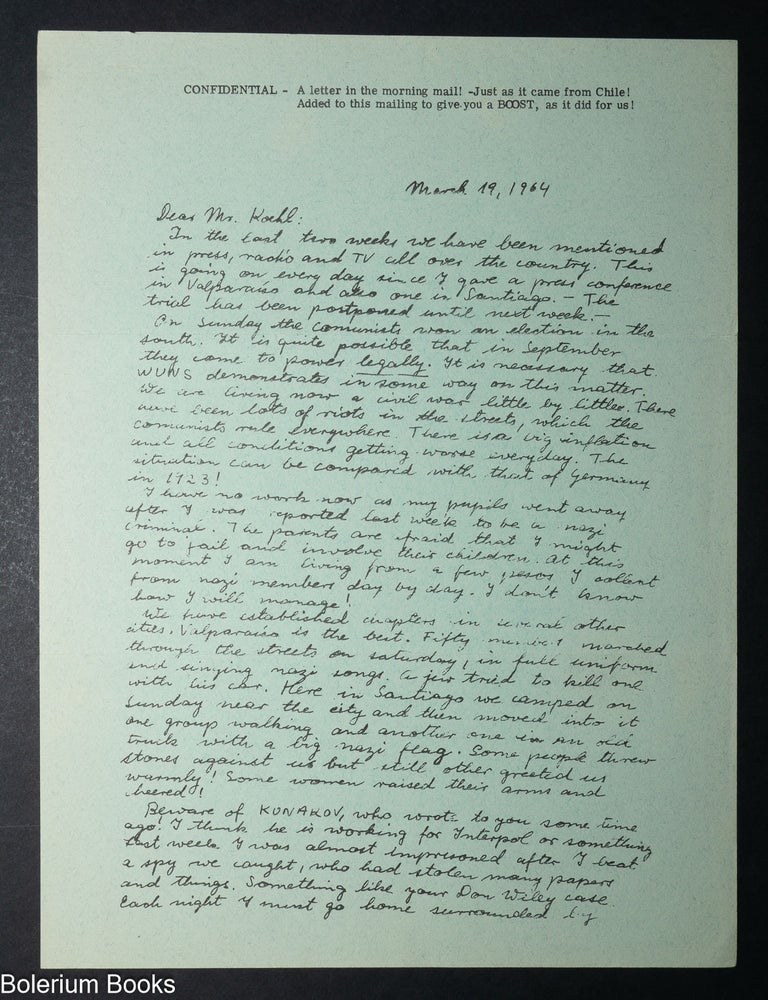 CONFIDENTIAL - A letter in the morning mail! -Just as it came from Chile!
Added to this mailing to give you a BOOST, as it did for us!
March 19, 1964
Dear Mr. Koehl:
In the last two weeks we have been mentioned
in press, radio and TV all over the country. This
is going on every day since I gave a press conference
in Valparaiso and also one in Santiago. - The
trial has been postponed until next week. -
On Sunday the communists won an election in the
south. It is quite possible that in September
they come to power legally. It is necessary that
WUNS demonstrates in some way on this matter.
We are living now a civil war little by little. There
have been lots of riots in the streets, which the
comunists rule everywhere. There is a big inflation
and all conditions getting worse everyday. The
situation can be compared with that of Germany
in 1923!
I have no work now as my pupils went away
after I was reported last week to be a nazi
criminal. The parents are afraid that I might
go to jail and involve their children. At this
moment I am living from a few pesos I collect
from nazi members day by day. I don't know
how I will manage!
We have established chapters in several other
cities. Valparaiso is the best. Fifty members marched
through the streets on saturday, in full uniform
and singing nazi songs. A jew tried to kill one
with his car. Here in Santiago we camped on
Sunday near the city and then moved into it
one group walking and another one in an old
truck with a big nazi flag. Some people threw
stones against us but still other greeted us
warmly! Some women raised their arms and
cheered!
Beware of KUNAKOV, who wrote to you some time
ago. I think he is working for Interpol or something
Last week I was almost imprisoned after I beat
a spy we caught, who had stolen many papers
and things. Something like your Don Wiley case.
Each night I must go home surrounded by
Bolerium Books